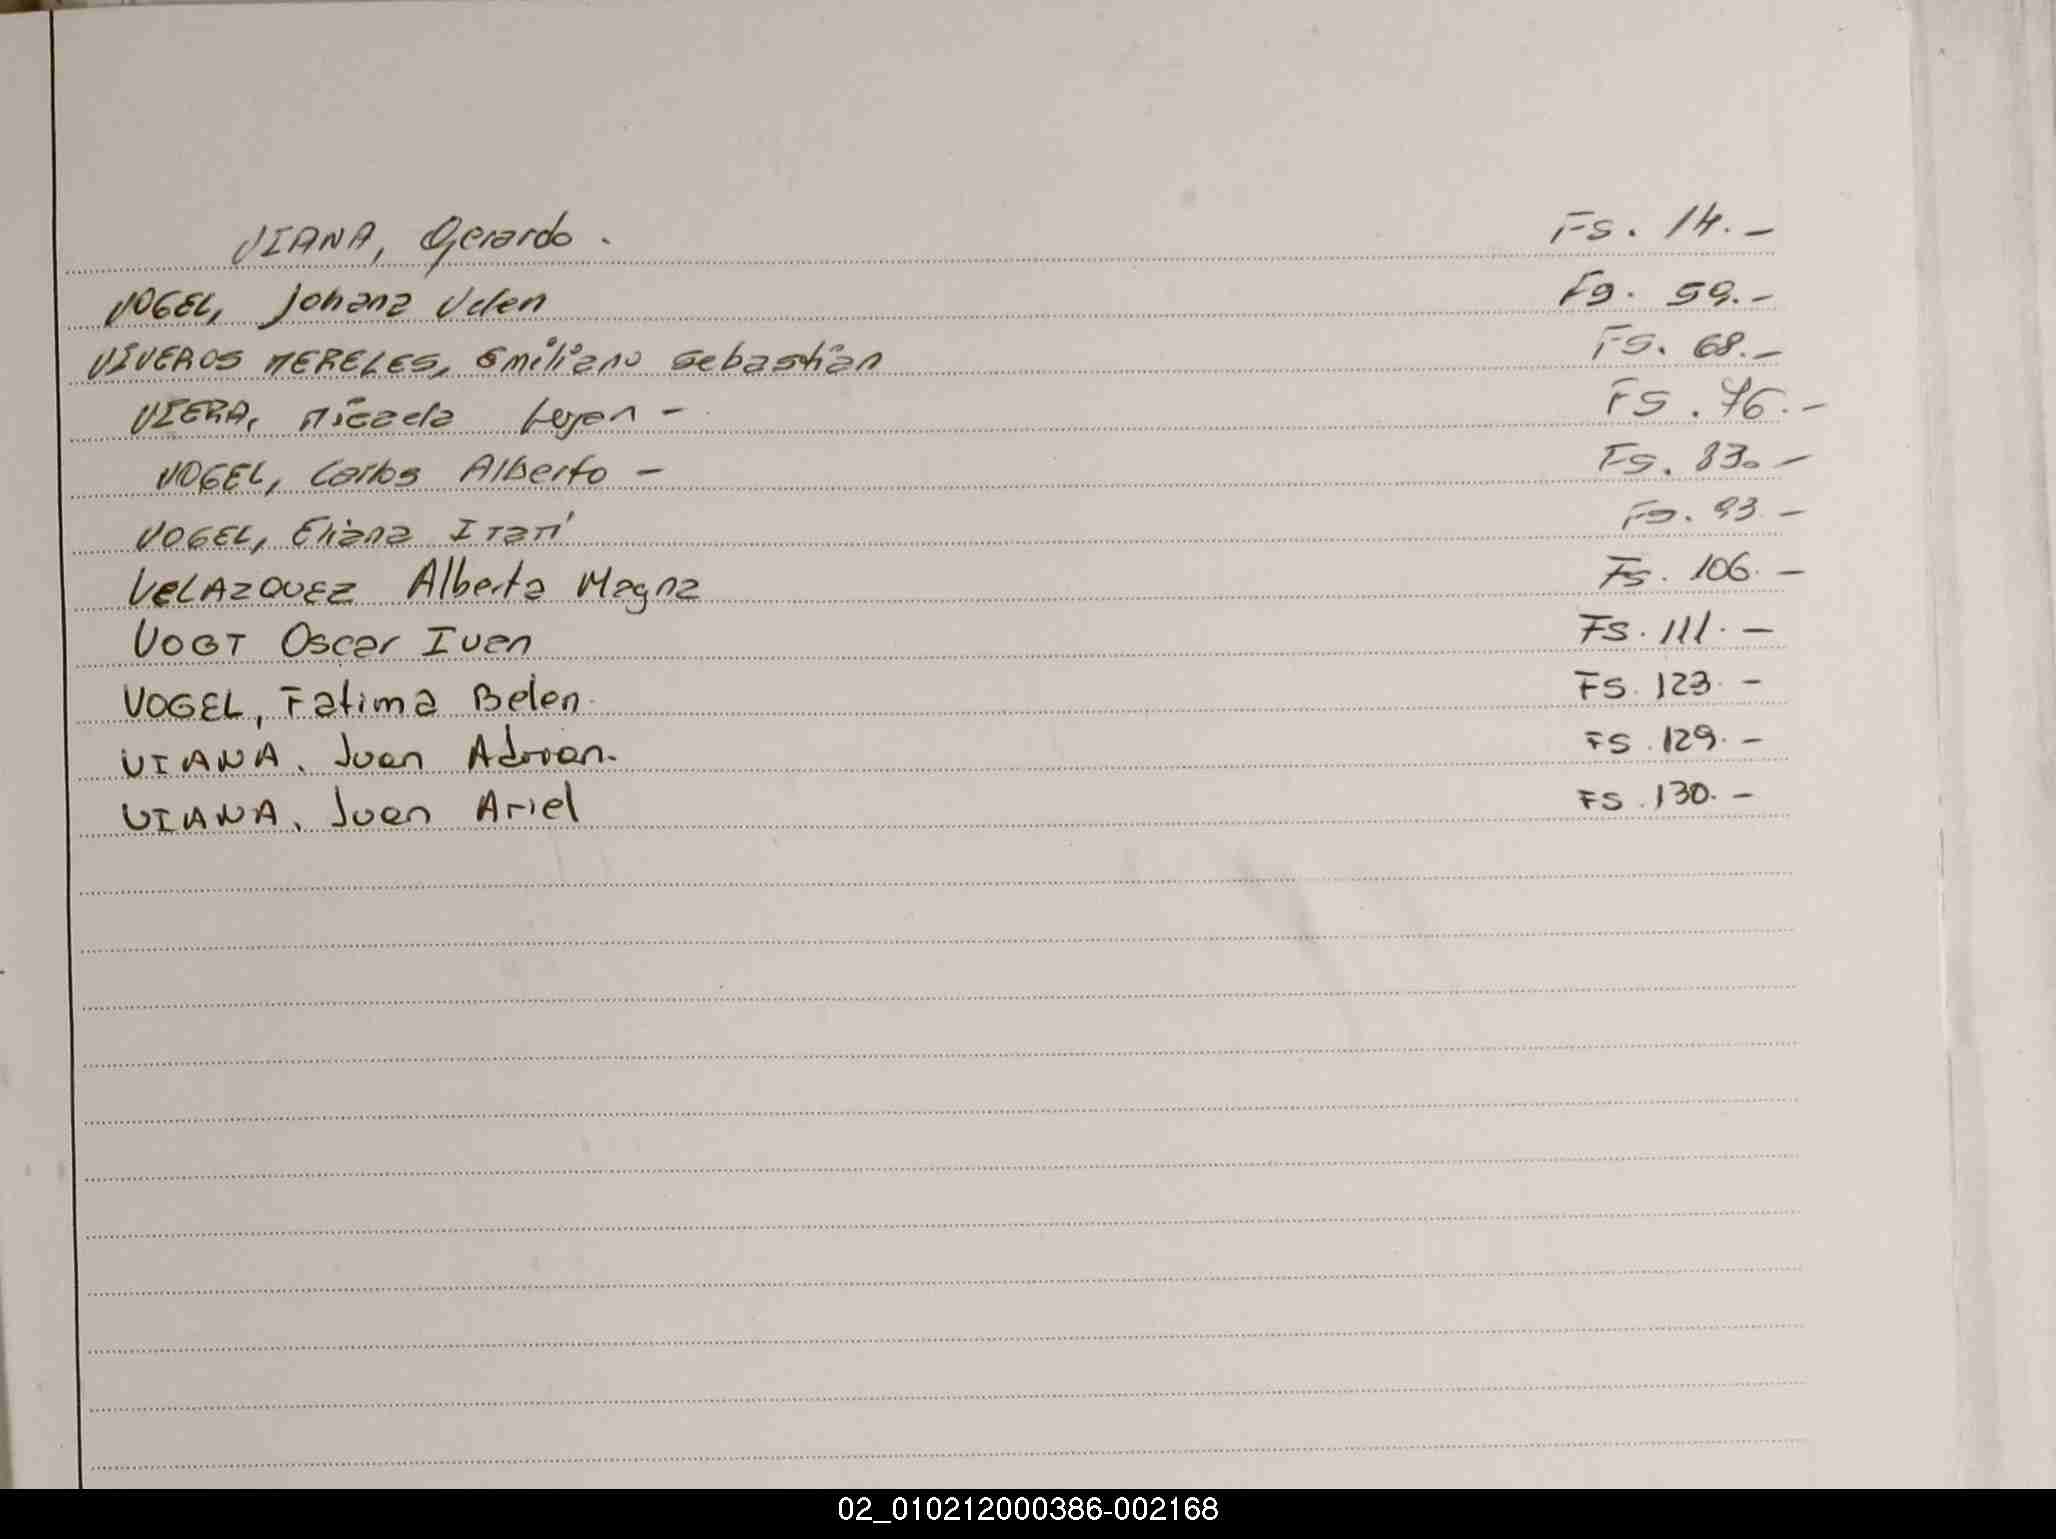 VIANA, Gerardo. Fs. 14.-
VOGEL, Johana Velen Fs. 59.-
VIVEROS MERELES, Emiliano Sebastián Fs. 68.-
VIERA, Micaela Lujan - Fs. 76.-
VOGEL, Carlos Alberto - Fs. 83.-
VOGEL, Eliana Itatí Fs. 93.-
VELAZQUEZ Alberta Magna Fs. 106.-
VOGT Oscar Ivan Fs. 111.-
VOGEL, Fatima Belen. FS. 123.-
VIANA, Juan Adrian. FS. 129.-
VIANA, Juan Ariel FS. 130.-
02_010212000386-002168